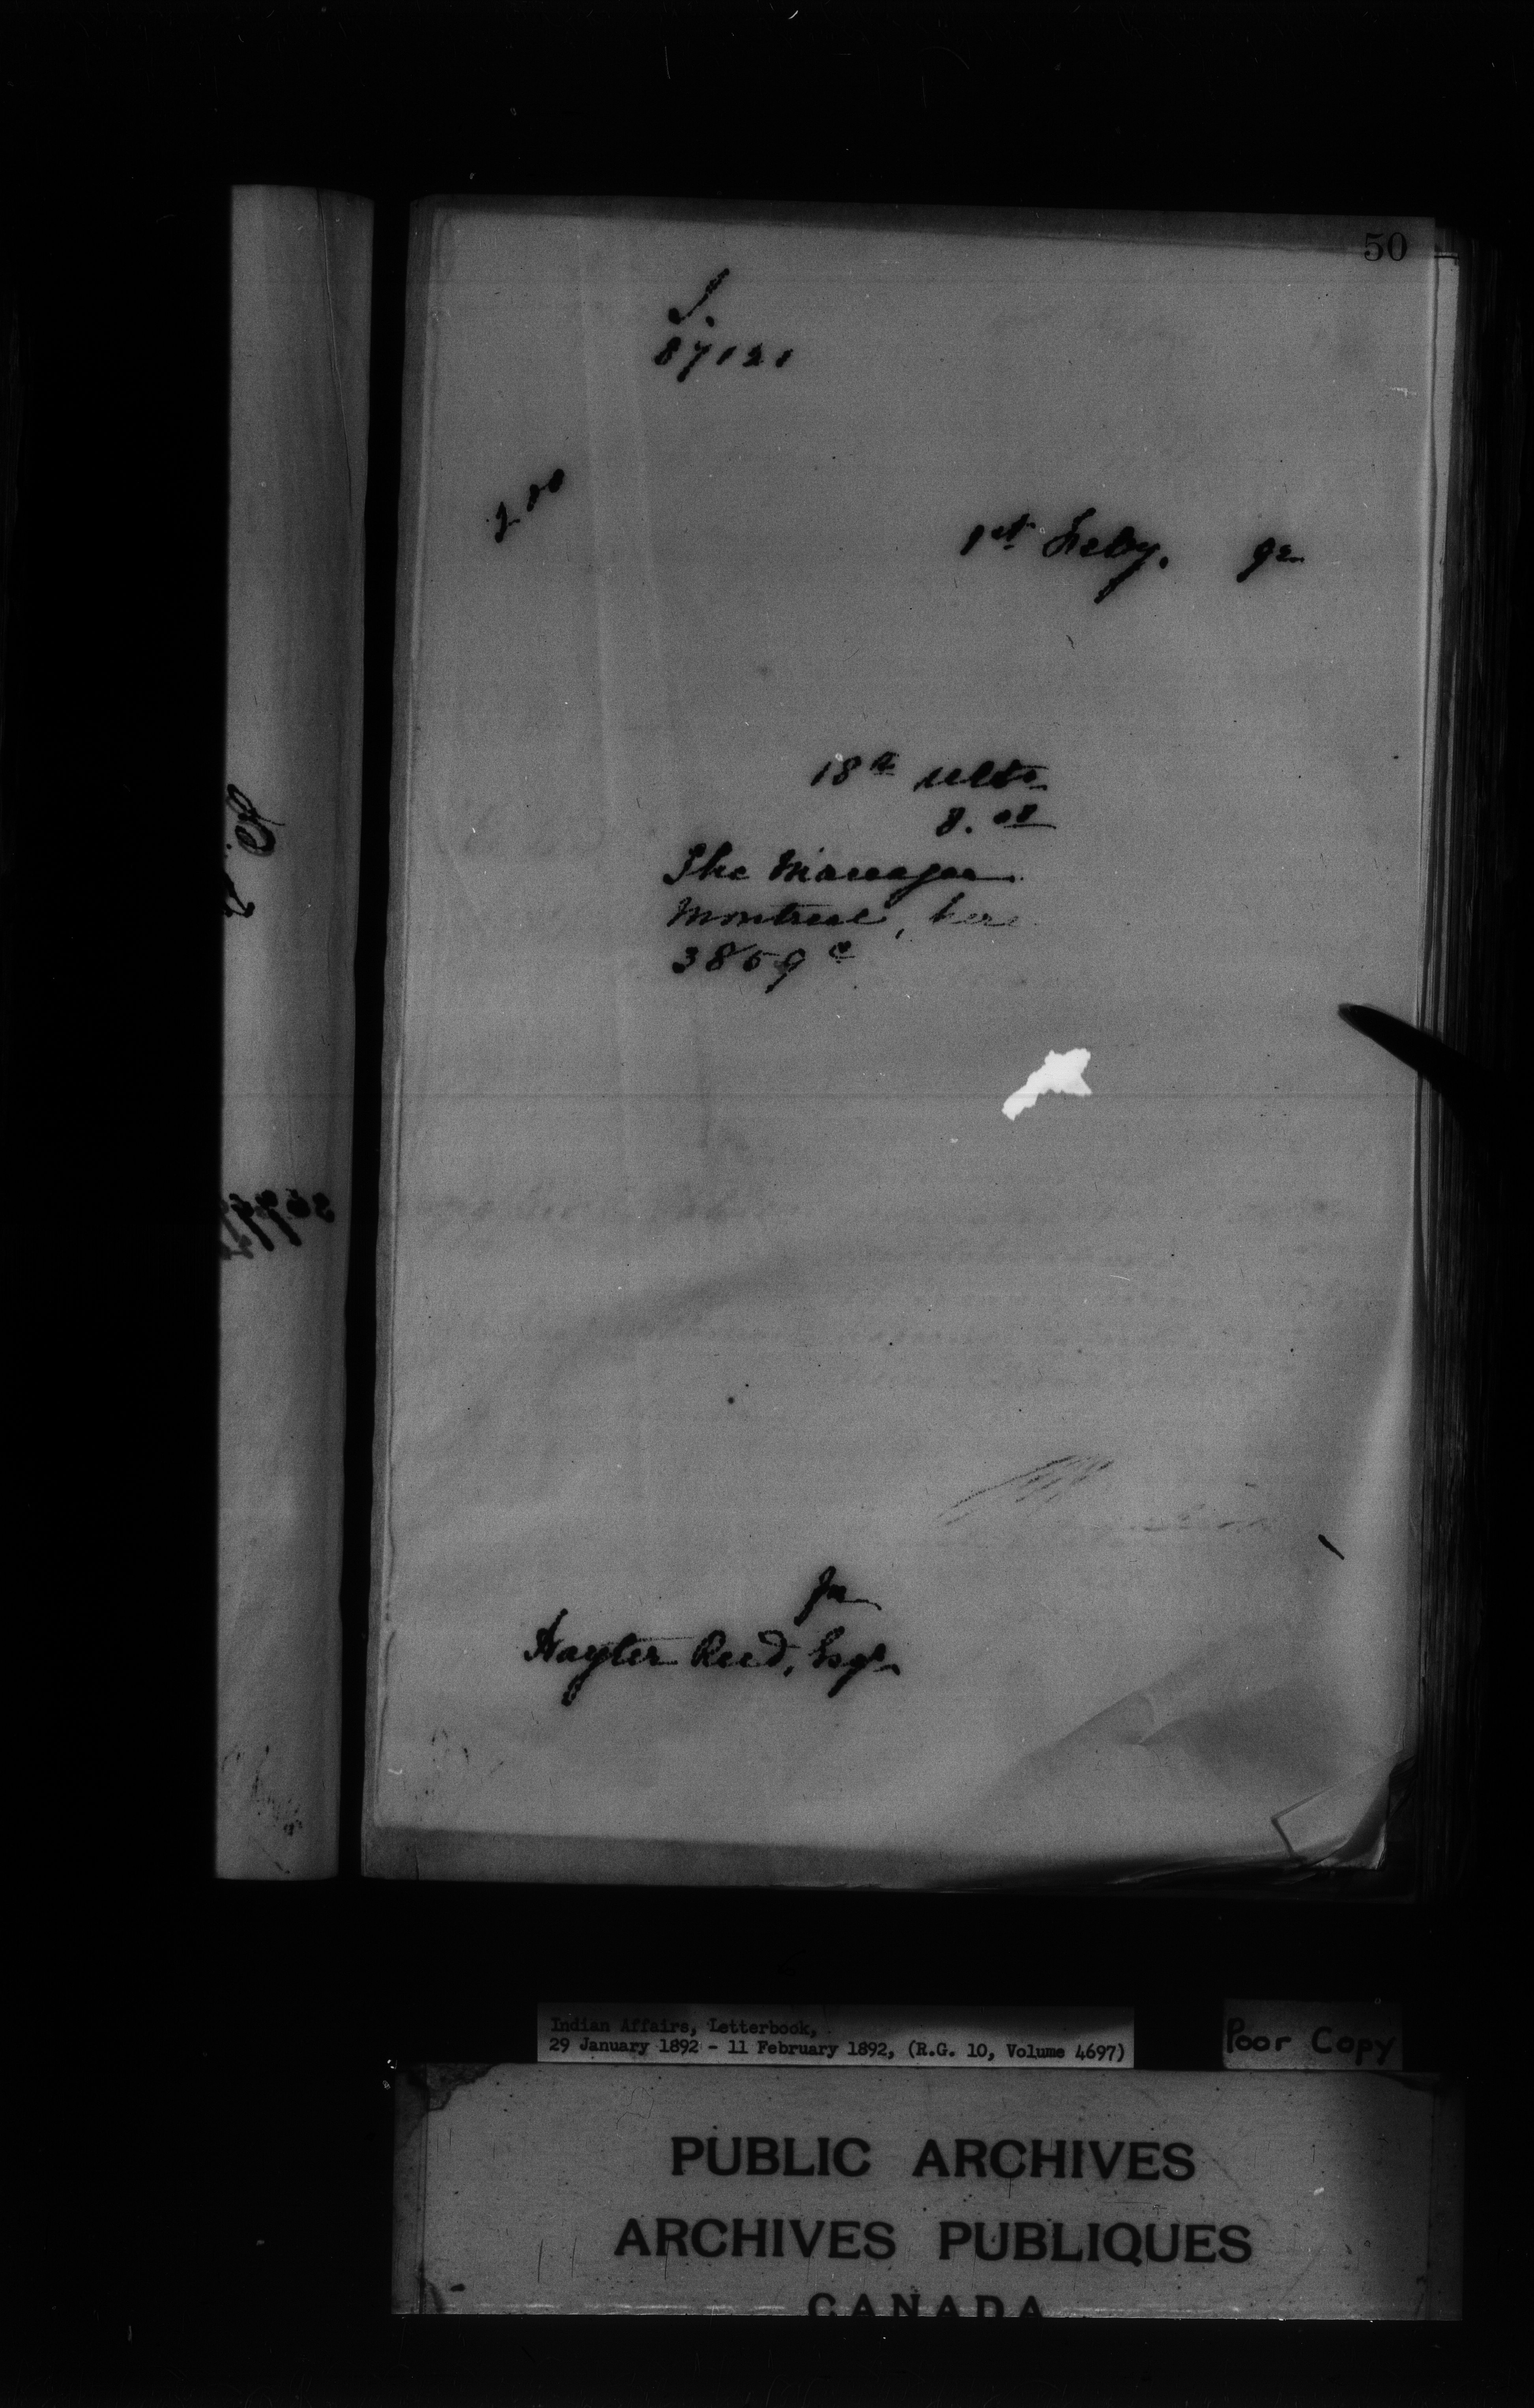 50
S.
87121
1st Feby. 92
18th ulto
8.08
The Manager
Montreal, here
3859 c
Hayter Reed, Esqr
Indian Affairs, Letterbook,
29 January 1892 - 11 February 1892, (R.G. 10, Volume 4697)
Poor Copy
PUBLIC ARCHIVES
ARCHIVES PUBLIQUES
CANADA